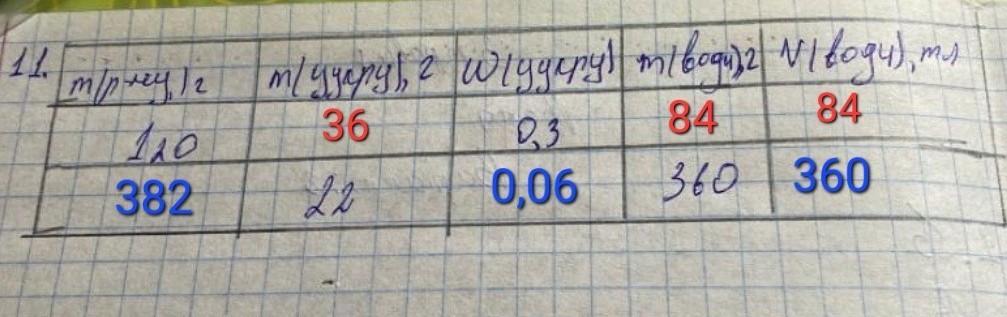 11. m(р-ну), г m(цукру), г W(цукру) m(води), г V(води), мл
120 36 0,3 84 84
382 22 0,06 360 360